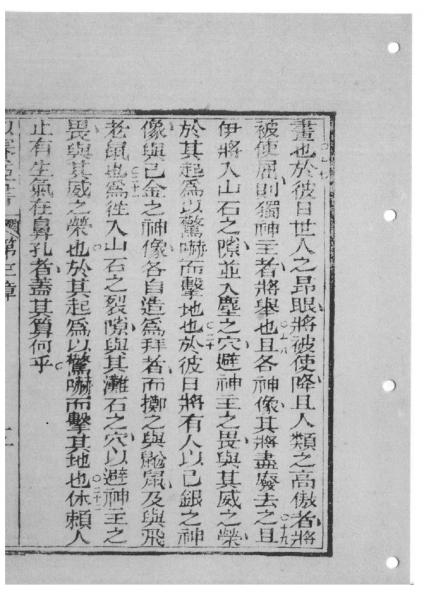 畫也於彼日世人之昂眼將被使降且人類之高傲者將
被使屈則獨神主者將舉也且各神像其將盡廢去之且
伊將入山石之隙並入塵之穴避神主之畏與其威之榮
於其起為以驚嚇而擊地也於彼日將有人以己銀之神
像與己金之神像各自造為拜者而擲之與鼢鼠及與飛
老鼠也為徃入山石之裂隙與其灘石之穴以避神主之
畏與其威之榮也於其起為以驚嚇而擊其地也休賴人
止有生氣在鼻孔者蓋其算何乎
以賽亞書 第二章